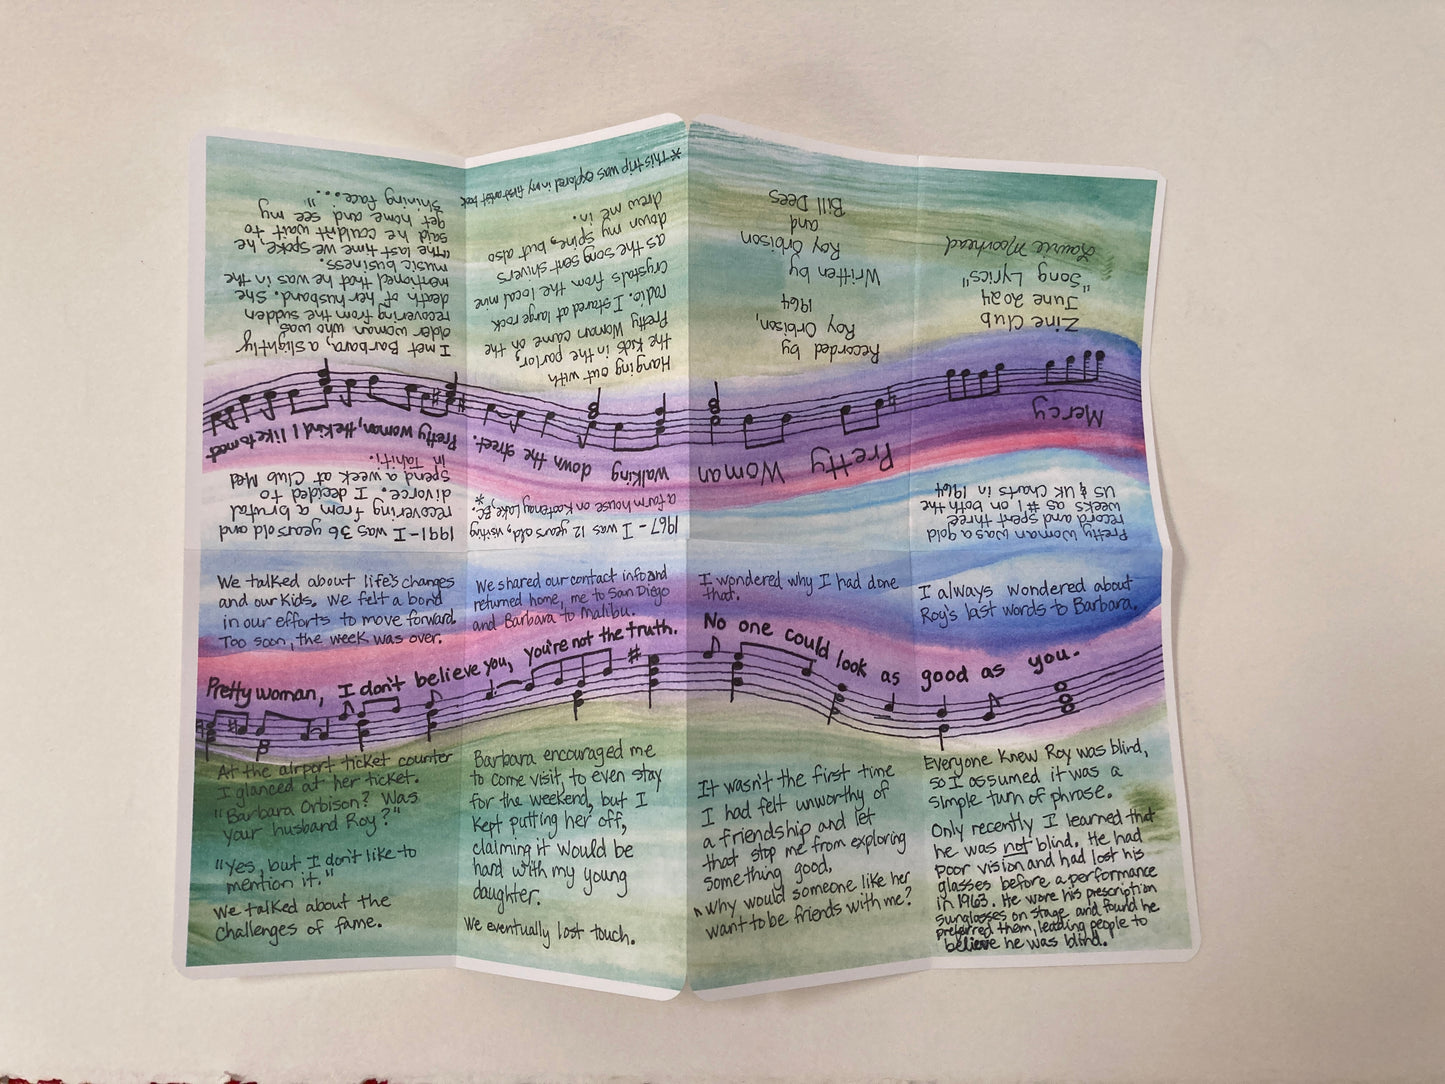 Pretty Woman was a gold
record and spent three
weeks as #1 on both the
US & UK charts in 1964
Mercy
Zine Club
June 2024
"Song Lyrics"
Laurie Moorhead
Pretty Woman
Recorded by
Roy Orbison,
1964
Written by
Roy Orbison
and
Bill Dees
1967 - I was 12 years old, visiting
a farm house on Kootenay Lake, BC. *
Walking down the street.
Hanging out with
the kids in the parlor,
Pretty Woman came on the
radio. I stared at large rock
crystals from the local mine
as the song sent shivers
down my spine, but also
drew me in.
*This trip was explored in my first artist book
1991 - I was 36 years old and
recovering from a brutal
divorce. I decided to
spend a week at Club Med
in Tahiti.
Pretty woman, the kind I like to meet
I met Barbara, a slightly
older woman who was
recovering from the sudden
death of her husband. She
mentioned that he was in the
music business.
"The last time we spoke, he
said he couldn't wait to
get home and see my
shining face..."
We talked about life's changes
and our kids. We felt a bond
in our efforts to move forward.
Too soon, the week was over.
Pretty woman, I don't believe you, you're not the truth.
At the airport ticket counter
I glanced at her ticket.
"Barbara Orbison? Was
your husband Roy?"
"Yes, but I don't like to
mention it."
We talked about the
challenges of fame.
We shared our contact info and
returned home, me to San Diego
and Barbara to Malibu.
Barbara encouraged me
to come visit, to even stay
for the weekend, but I
kept putting her off,
claiming it would be
hard with my young
daughter.
We eventually lost touch.
I wondered why I had done
that.
No one could look as good as you.
It wasn't the first time
I had felt unworthy of
a friendship and let
that stop me from exploring
something good.
Why would someone like her
want to be friends with me?
I always wondered about
Roy's last words to Barbara.
Everyone knew Roy was blind,
so I assumed it was a
simple turn of phrase.
Only recently I learned that
he was not blind. He had
poor vision and had lost his
glasses before a performance
in 1963. He wore his prescription
sunglasses on stage and found he
preferred them, leading people to
believe he was blind.